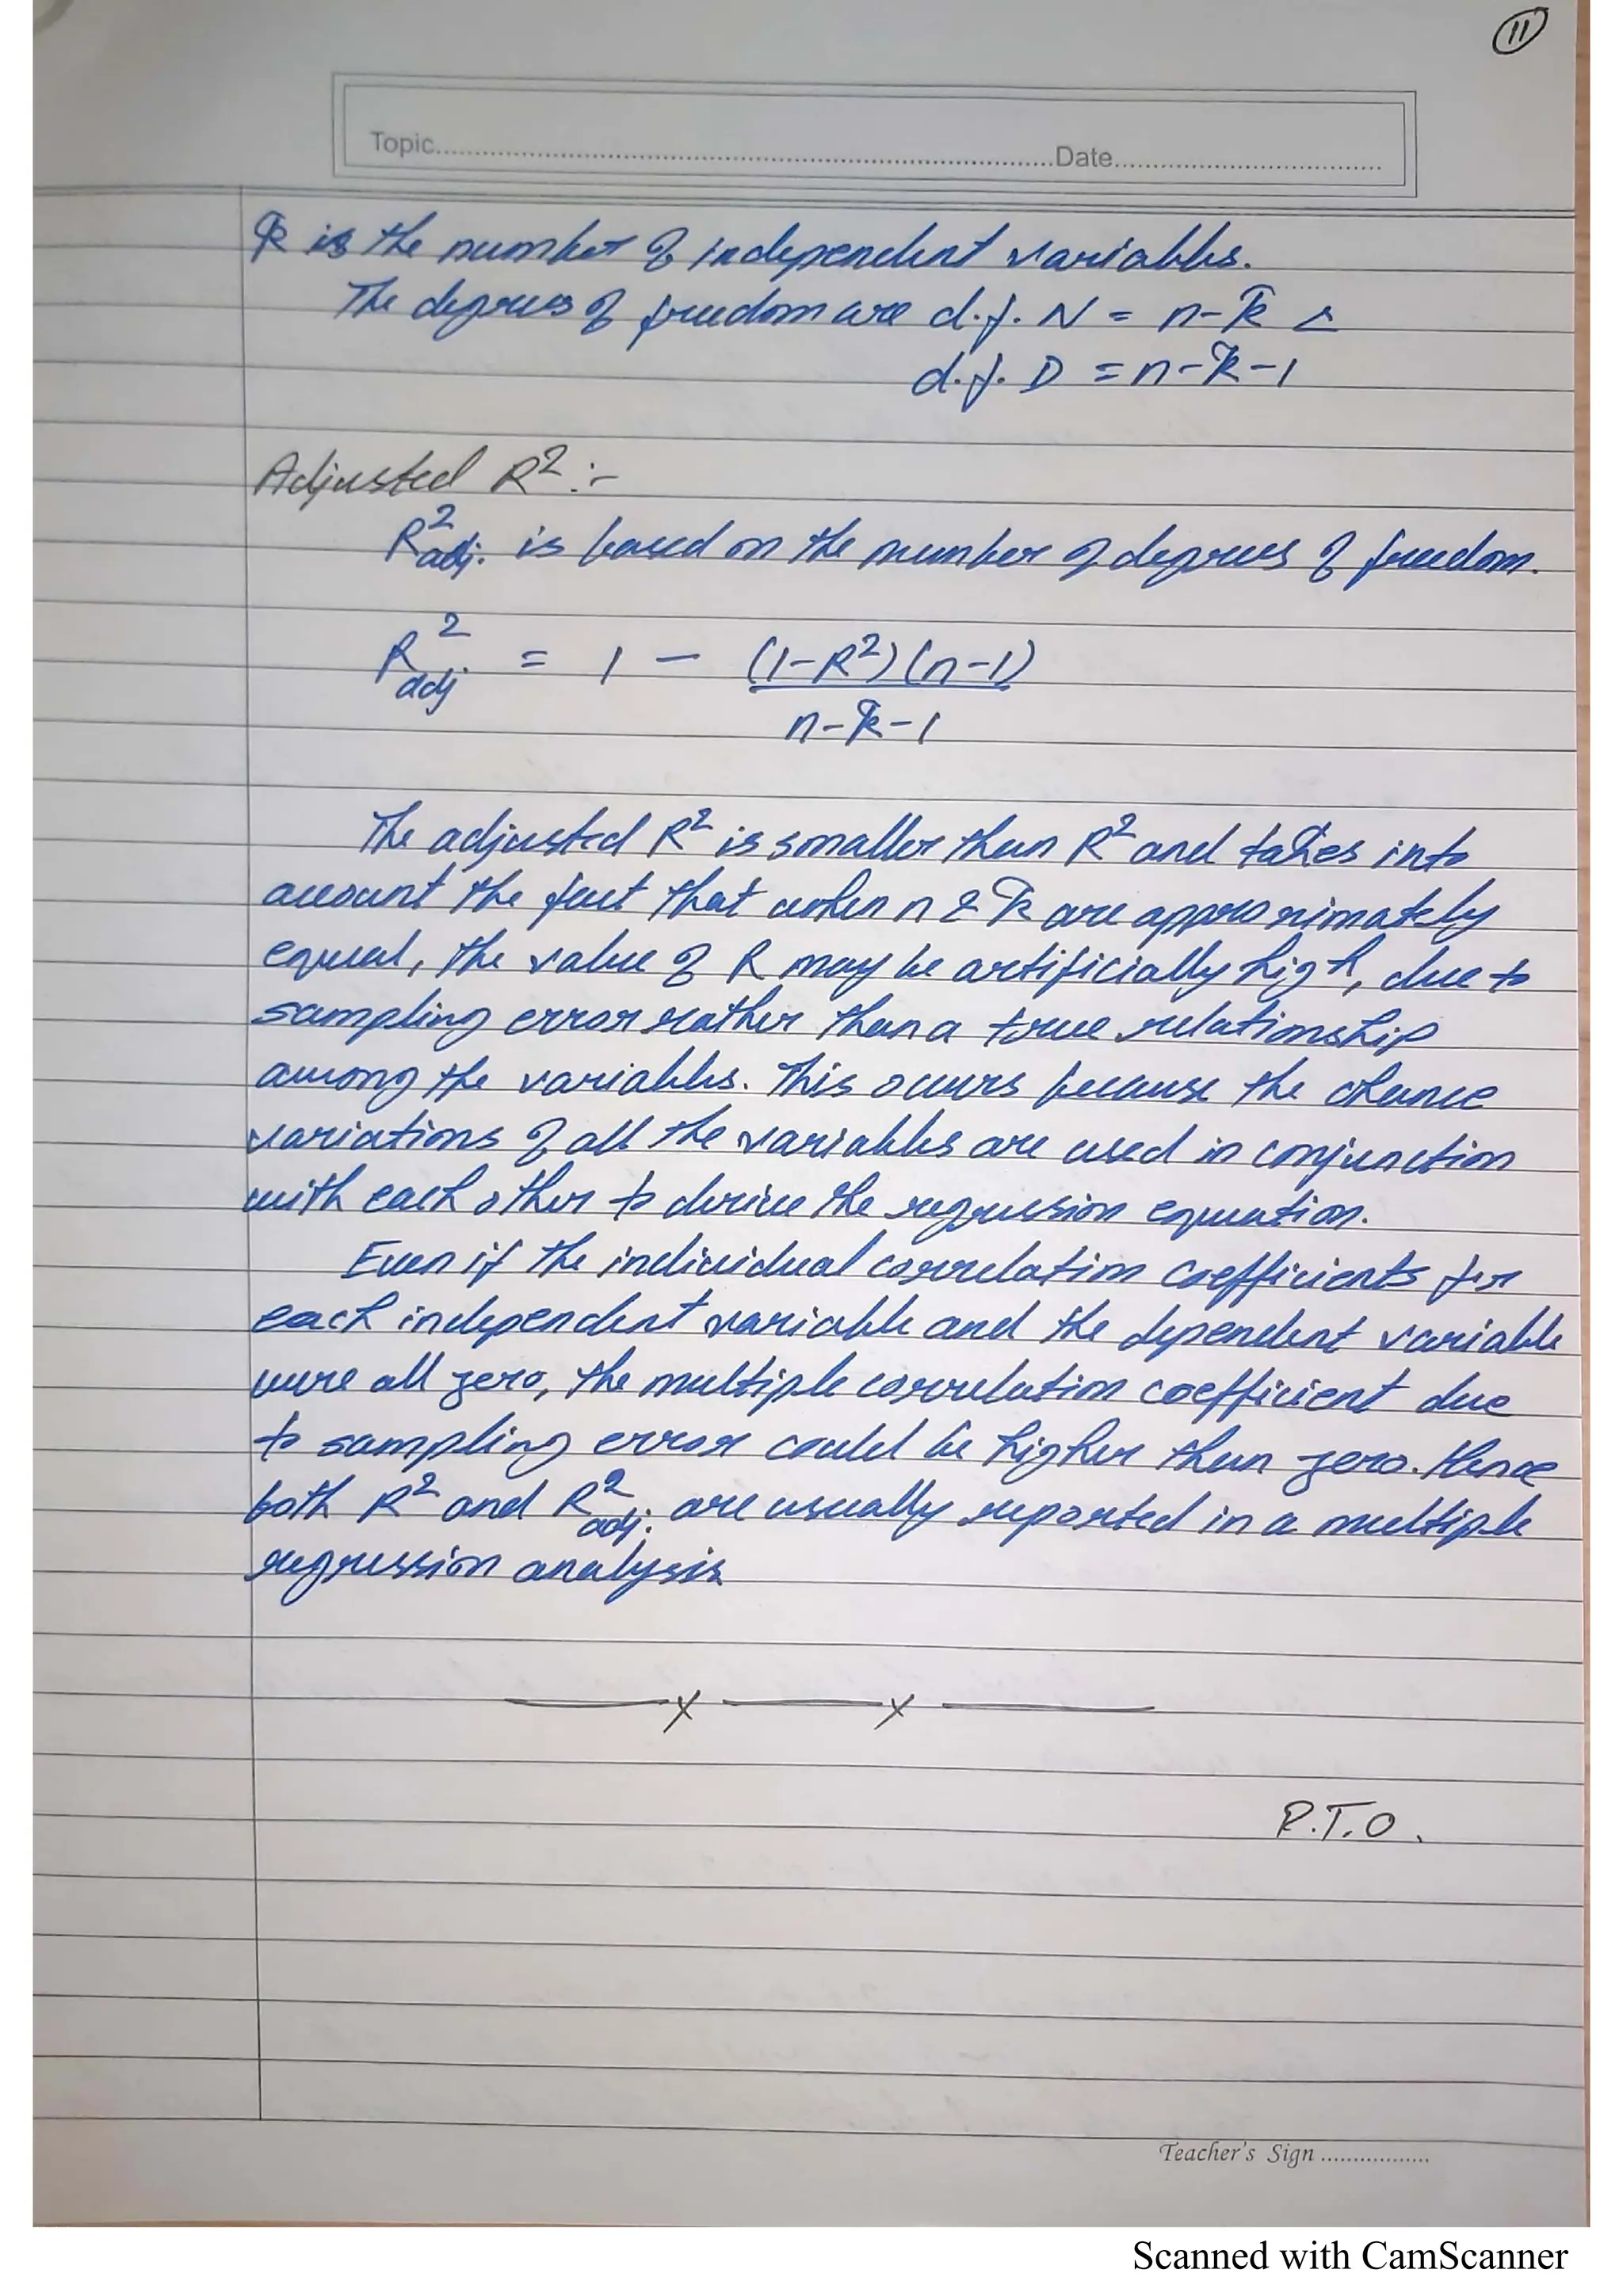 11
Topic.....................Date.....................
k is the number of independent variables.
The degrees of freedom are d.f. N = n-k &
d.f. D = n-k-1
Adjusted R² :-
R²adj. is based on the number of degrees of freedom.
R²adj. = 1 - (1-R²)(n-1)
n-k-1
The adjusted R² is smaller than R² and takes into
account the fact that when n & k are approximately
equal, the value of R may be artificially high, due to
sampling error rather than a true relationship
among the variables. This occurs because the chance
variations of all the variables are used in conjunction
with each other to derive the regression equation.
Even if the individual correlation coefficients for
each independent variable and the dependent variable
were all zero, the multiple correlation coefficient due
to sampling error could be higher than zero. Hence
both R² and R²adj. are usually reported in a multiple
regression analysis.
x x
P.T.O.
Teacher's Sign ..................
Scanned with CamScanner